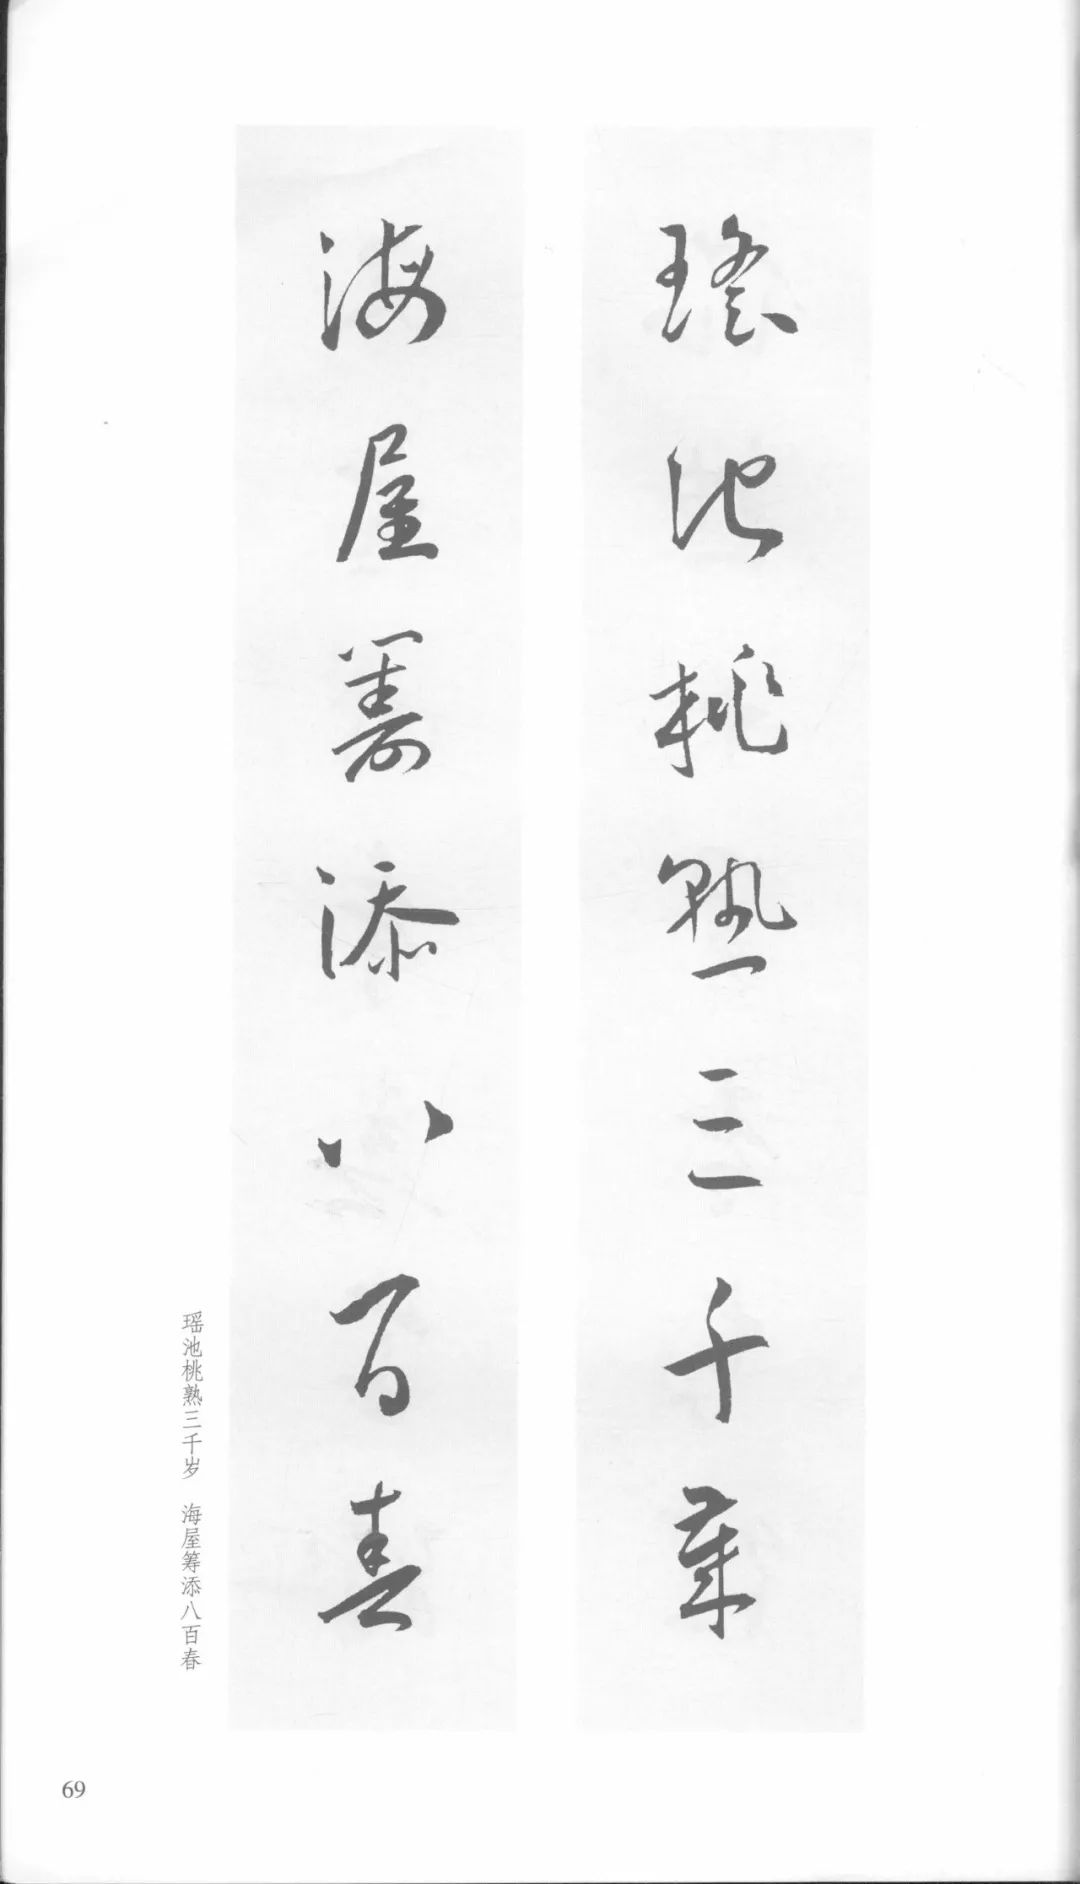 瑶池桃熟三千岁
海屋筹添八百春
瑶池桃熟三千岁 海屋筹添八百春
69